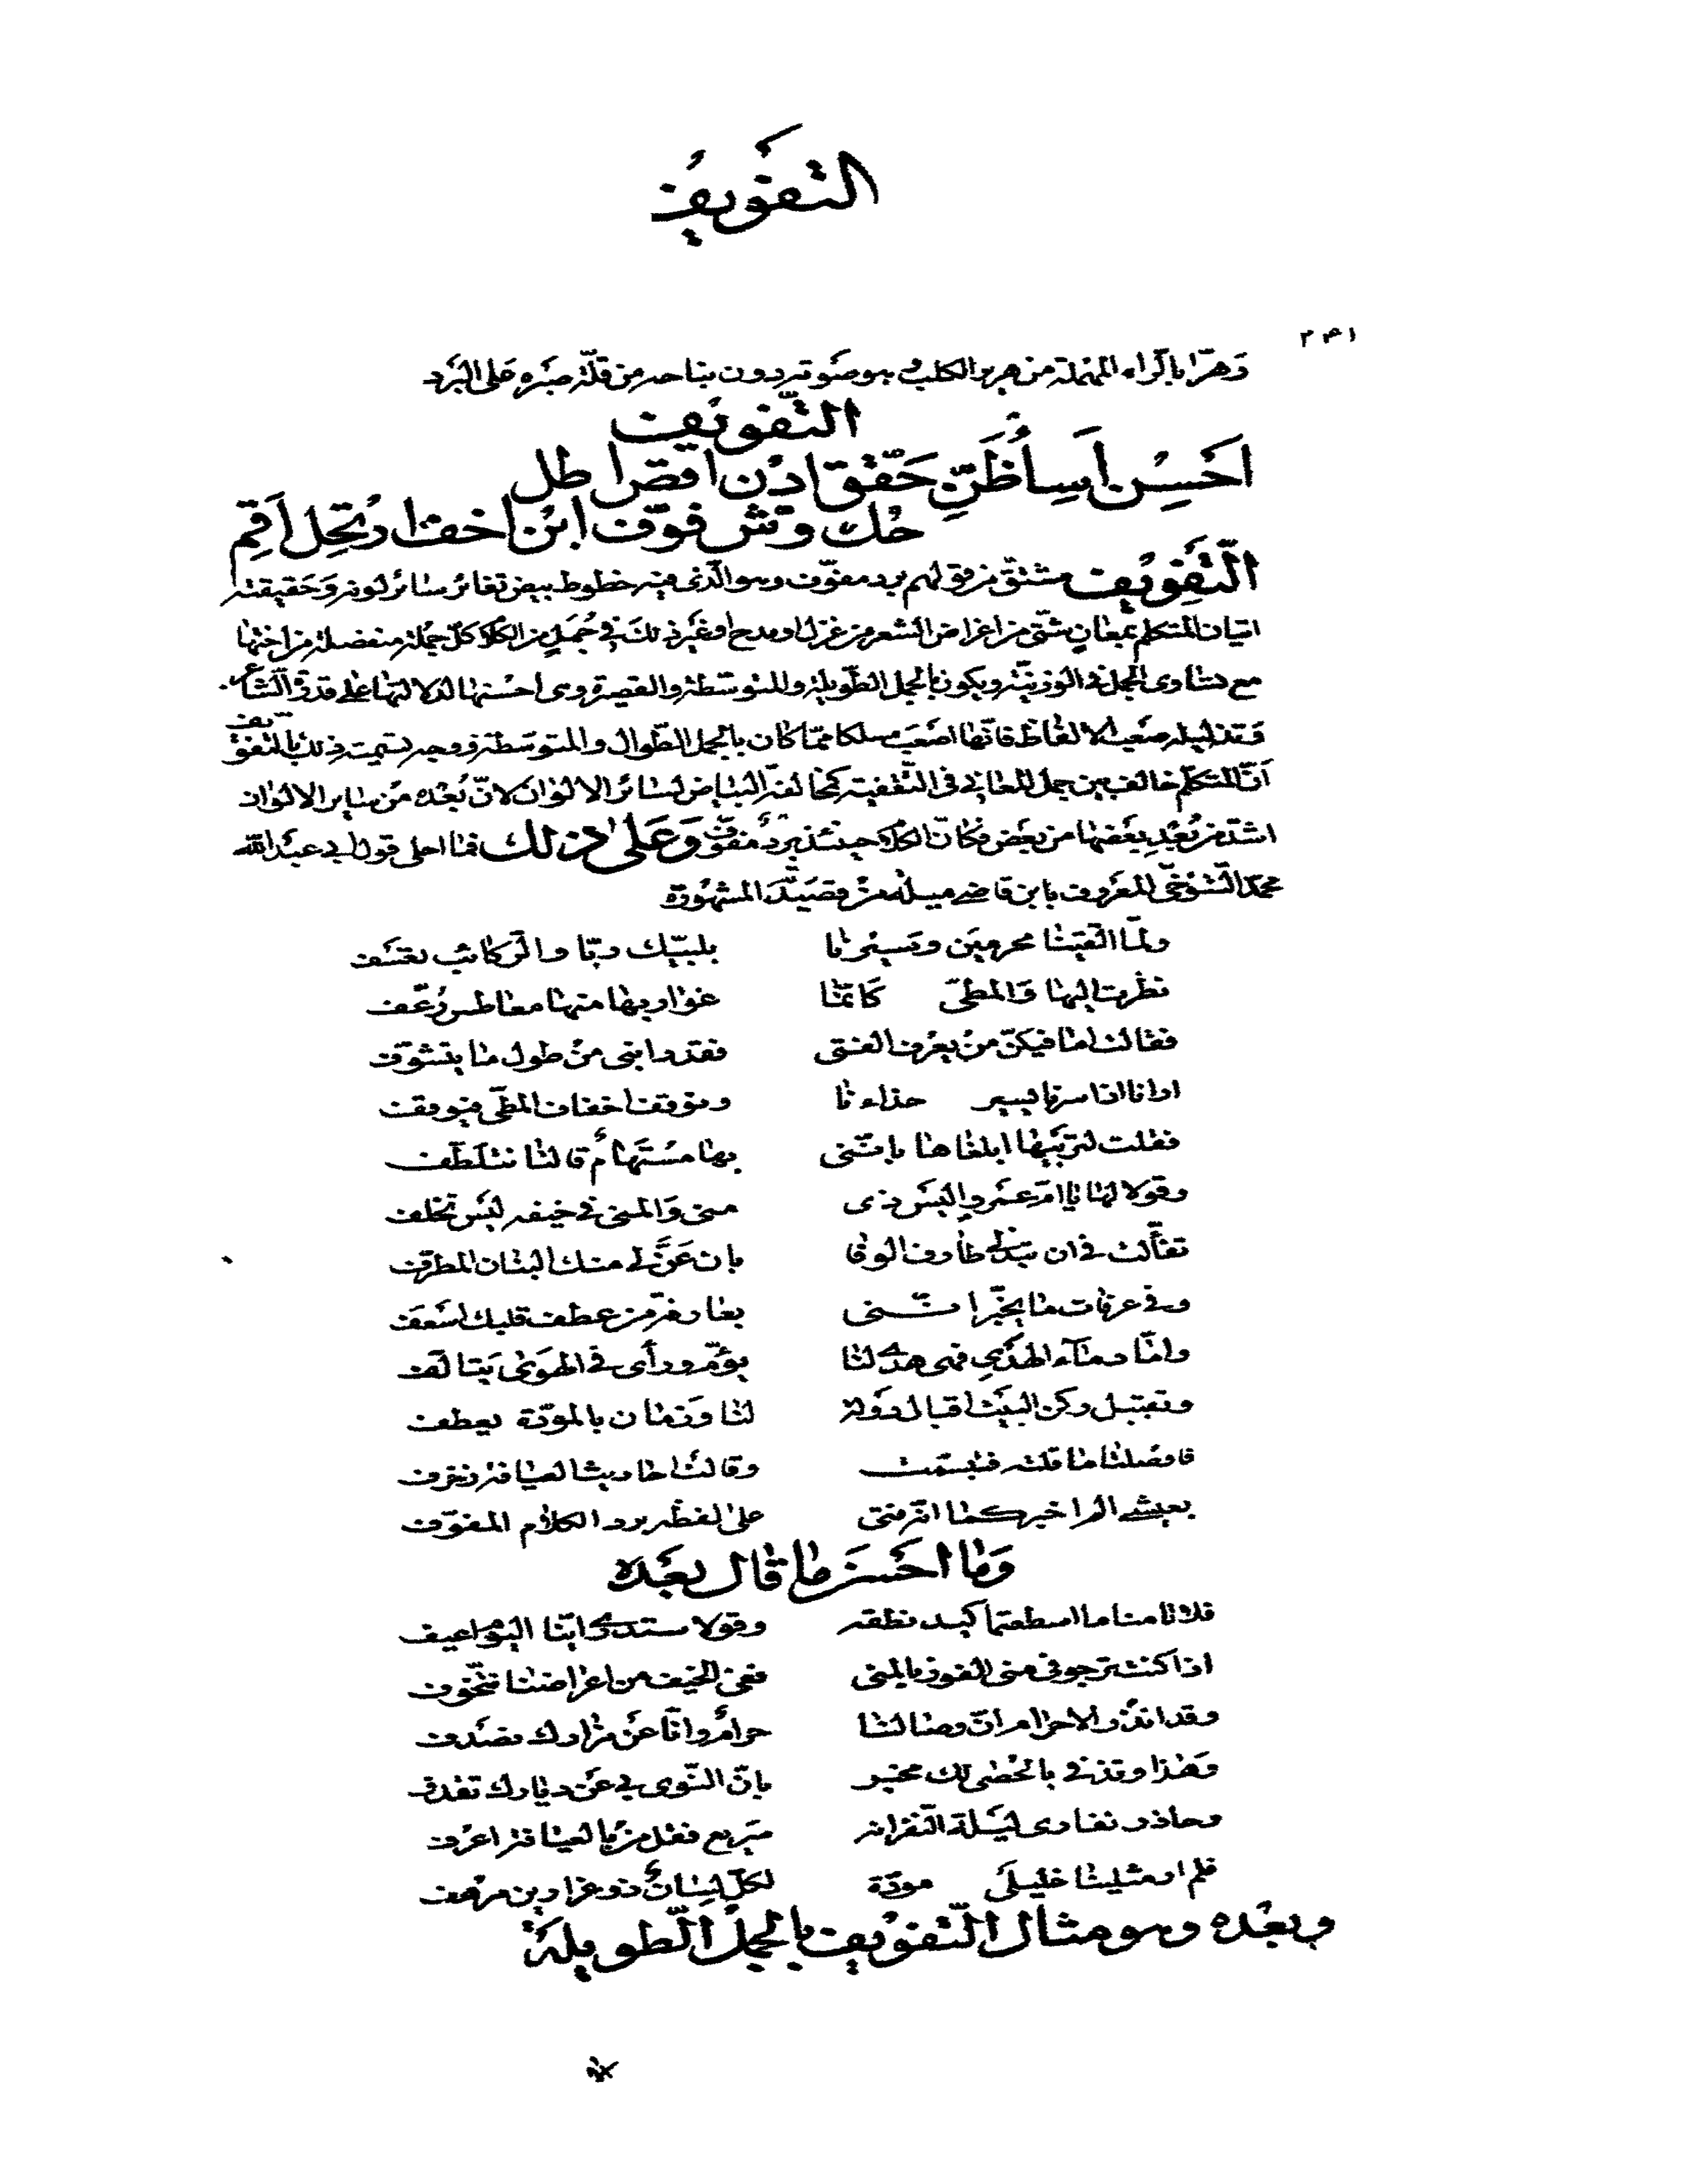 التفويف
٢٣١
وَهرّا بالراء المهملة من هرير الكلب وهو صوته دون نباحه من قلّة صبره على البرد
التّفويف
احسن اسأ ظنّ حقّق ادن اقصر اطل
حك وشّ فوّف ابن اخف ارتحل اقم
التّفويف مشتقّ من قولهم برد مفوّف وهو الّذى فيه خطوط بيض تغائر سائر لونه وحقيقته
اتيان المتكلم بمعانٍ شتّى من اغراض الشعر من غزل او مدح او غير ذلك فى جُمَلٍ من الكلام كلّ جملة منفصلة من اختها
مع تساوى الجمل فى الوزنيّة ويكون بالجمل الطّويلة والمتوسّطة والقصيرة وهى احسنها لدلالتها على قدرة الشّاعر
صعبة الالفاظ فانّها اصعب مسلكا ممّا كان بالجمل الطّوال والمتوسّطة ووجه تسميته ذلك بالتّفويف
انّ المتكلّم خالف بين جمل المعانى فى التّقفية كمخالفة البياض لسائر الالوان لانّ بُعده من سائر الالوان
اشدّ من بُعدِ بعضها من بعض فكانّ الكلام حينئذ بردٌ مفوّف وعلى ذلك فما احلى قول ابى عبد الله
محمّد التّنوخىّ المعروف بابن قاضى ميله من قصيدته المشهورة
ولمّا التقينا محرمين وسيرنا بلبيّك ربّا والرّكائب تعسف
نظرت اليها والمطىّ كانّما غواربها منها معاطس رُعّف
فقالت اما فيكنّ من يعرف الفتى فقد رابنى من طول ما يتشوّف
اراه اذا سرنا يسير حذاءنا ونوقف اخفاف المطىّ فيوقف
فقلت لتربيها ابلغاها باننى بها مستهامٌ قالتا نتلطّف
وقولا لها يا امّ عمرو اليس ذى منى والمنى فى خيفه ليس تخلف
تفألت فى ان تبذلى طارف الوفا بان عنّ لى منك البنان المطرّف
وفى عرفات ما يخبّر انّنى بعارفة من عطف قلبك اسعف
وامّا دماء الهدى فهى هدى لنا يدوم ورأى فى الهوى يتألّف
وتقبيل ركن البيت اقبال دولة لنا وزمان بالمودّة يعطف
فاوصلتا ما قلته فتبسّمت وقالت احاديث العيافة زخرف
بعيشى الم اخبركما انّه فتى على لفظه برد الكلام المفوّف
وما احسن ما قال بعده
فلا تامنا ما اسطعتما كيد نطقه وقولا ستدرى ايّنا اليوم اعيف
اذا كنت ترجو فى منى الفوز بالمنى ففى الخيف من اعراضنا تتخوّف
وقد انذر الاحرام انّ وصالنا حرامٌ وانّا عن مزارك نصدف
وهذا وقذفى بالحصى لك مخبر بانّ النّوى بى عن ديارك تقذف
وحاذر نفارى ليلة النّفر انه سريع فقل من بالعيافة اعرف
فلم ار مثلينا خليلى مودّة لكلّ لسانٌ ذو غرارين مرهف
وبعده وهو مثال التّفويف بالجمل الطّويلة